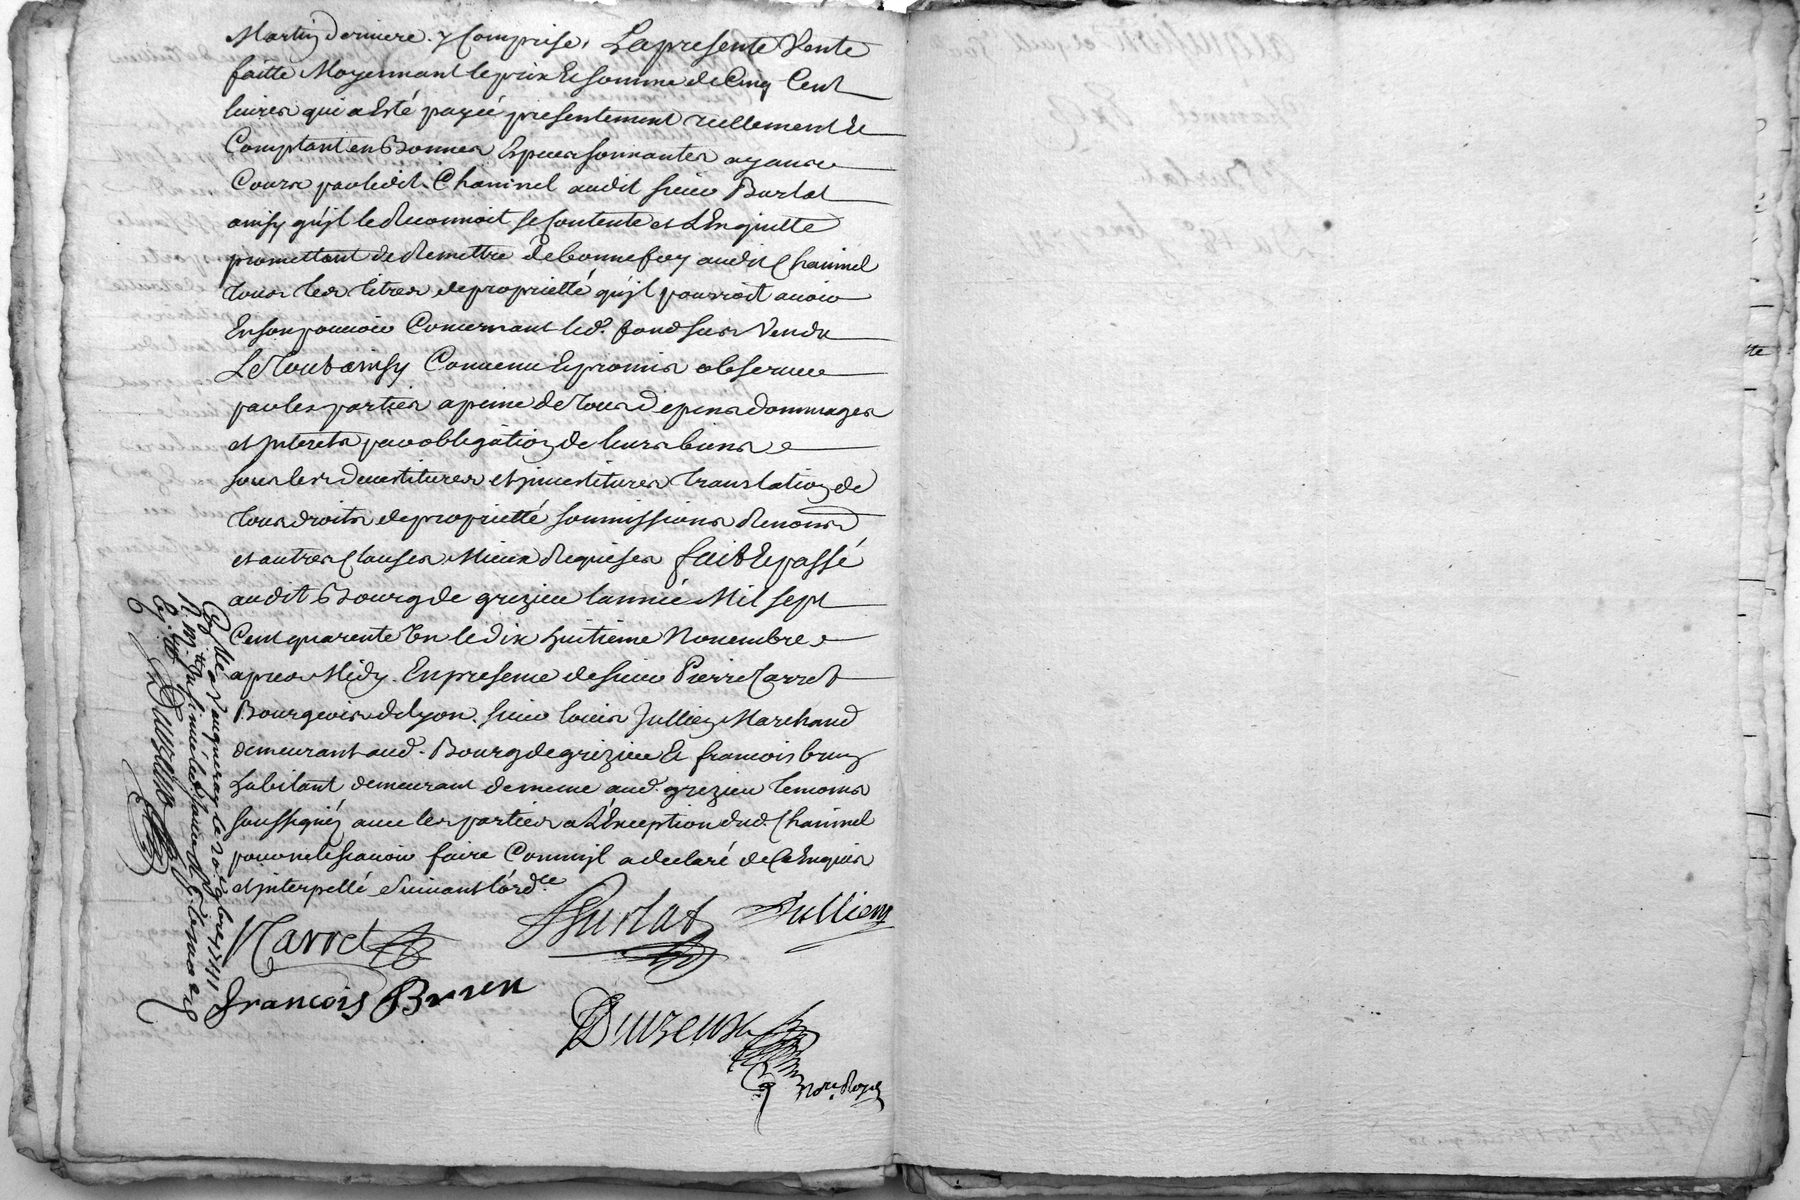 Martin derniere y Comprise, La presente Vente
faitte Moyennant le prix Et somme de Cinq Cent
livres qui a Esté payéé presentement réellement Et
Comptant en Bonnes Especes sonnantes ayant
Cours par ledit Chaninel audit sieur Burlat
ainsy qu'jl le Reconnoit se Contente et L'En quitte
promettant de Remettre de bonne foy audit Chaninel
tous les titres de proprietté qu'jl pourroit avoir
En son pouvoir Concernant led. fond sus Vendu
Le Tout ainsy Convenu Et promis observer
par les parties a peine de tous depens dommages
et jnterets par obligation de leurs biens
sous les devestitures et jnvestitures translation de
tous droits de proprietté soumissions Renonc.
et autres Clauses Mieux Requises fait Et passé
audit Bourg de grezieu l'année Mil sept
Cent quarente Un le dix huitieme Novembre
apres Midy. En presence de sieur Pierre Carret
Bourgeois de lyon. sieur louis Jullien Marchand
demeurant aud. Bourg de grezieu Et francois brun
habitant demeurant de meme aud. grezieu temoins
soussignéz avec les parties a L'Exception dud. Chaninel
pour ne le scavoir faire Comm'jl a declaré de Ce Enquis
et jnterpellé suivant l'ord.ce
Carret Burlat Jullien
francois Brun
Duzeux
No.re Royal
a Vaugneray le 1741
Duzeux